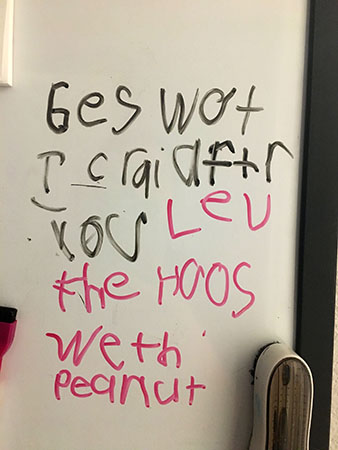 Ges wot
I craid aftr
you Leu
the HOOS
weth
peanut